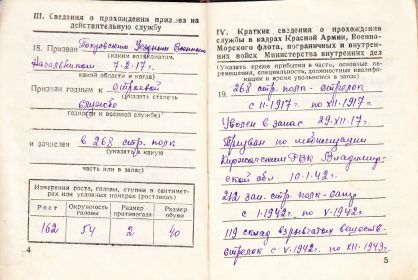 III. Сведения о прохождении призыва на
действительную службу
18. Призван Покровским Уездным Воинским
(каким военкоматом,
Начальником 7-2-17г.
какой области и когда)
Признан годным к строевой
(указать степень
службе
годности к военной службе)
и зачислен в 268 стр. полк
(указать в какую
часть или в запас)
Измерения роста, головы, ступни в сантимет-
рах или условных номерах (ростовках)
Рост Окружность головы Размер противогаза Размер обуви
162 54 2 40
4
IV. Краткие сведения о прохождении
службы в кадрах Красной Армии, Военно-
Морского флота, пограничных и внутрен-
них войск Министерства внутренних дел
(Указать время прибытия в часть, основные пере-
мещения, специальность, должностную квалифи-
кацию и время увольнения в запас)
19. 268 стр. полк - стрелок
с II-1917г. по XII-1917г.
Уволен в запас 29-XII-17г.
Призван по мобилизации
Киржачским РВК Владимир-
ской обл. 10.1-42г.
212 зап. стр. полк -
с I-1942г. по V-1942г.
119 склад взрывчатых веществ -
стрелок с V-1942г. по XII-1943г.
5